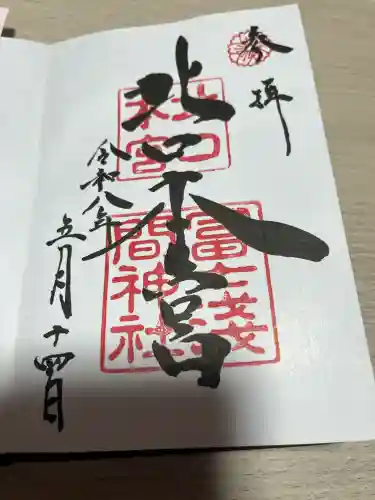 奉拝
北口本宮
北口
本宮
冨士淺
間神社
令和八年
五月十四日